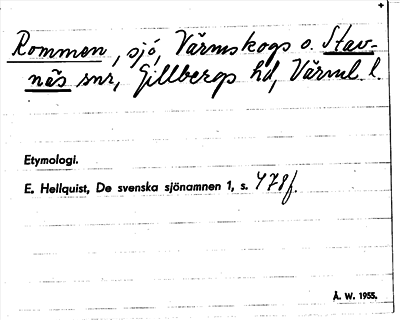 +
Rommen, sjö, Värmskogs o. Stav-
näs snr, Gillbergs hd, Värml. l.
Etymologi.
E. Hellquist, De svenska sjönamnen 1, s. 478f.
Å. W. 1955.